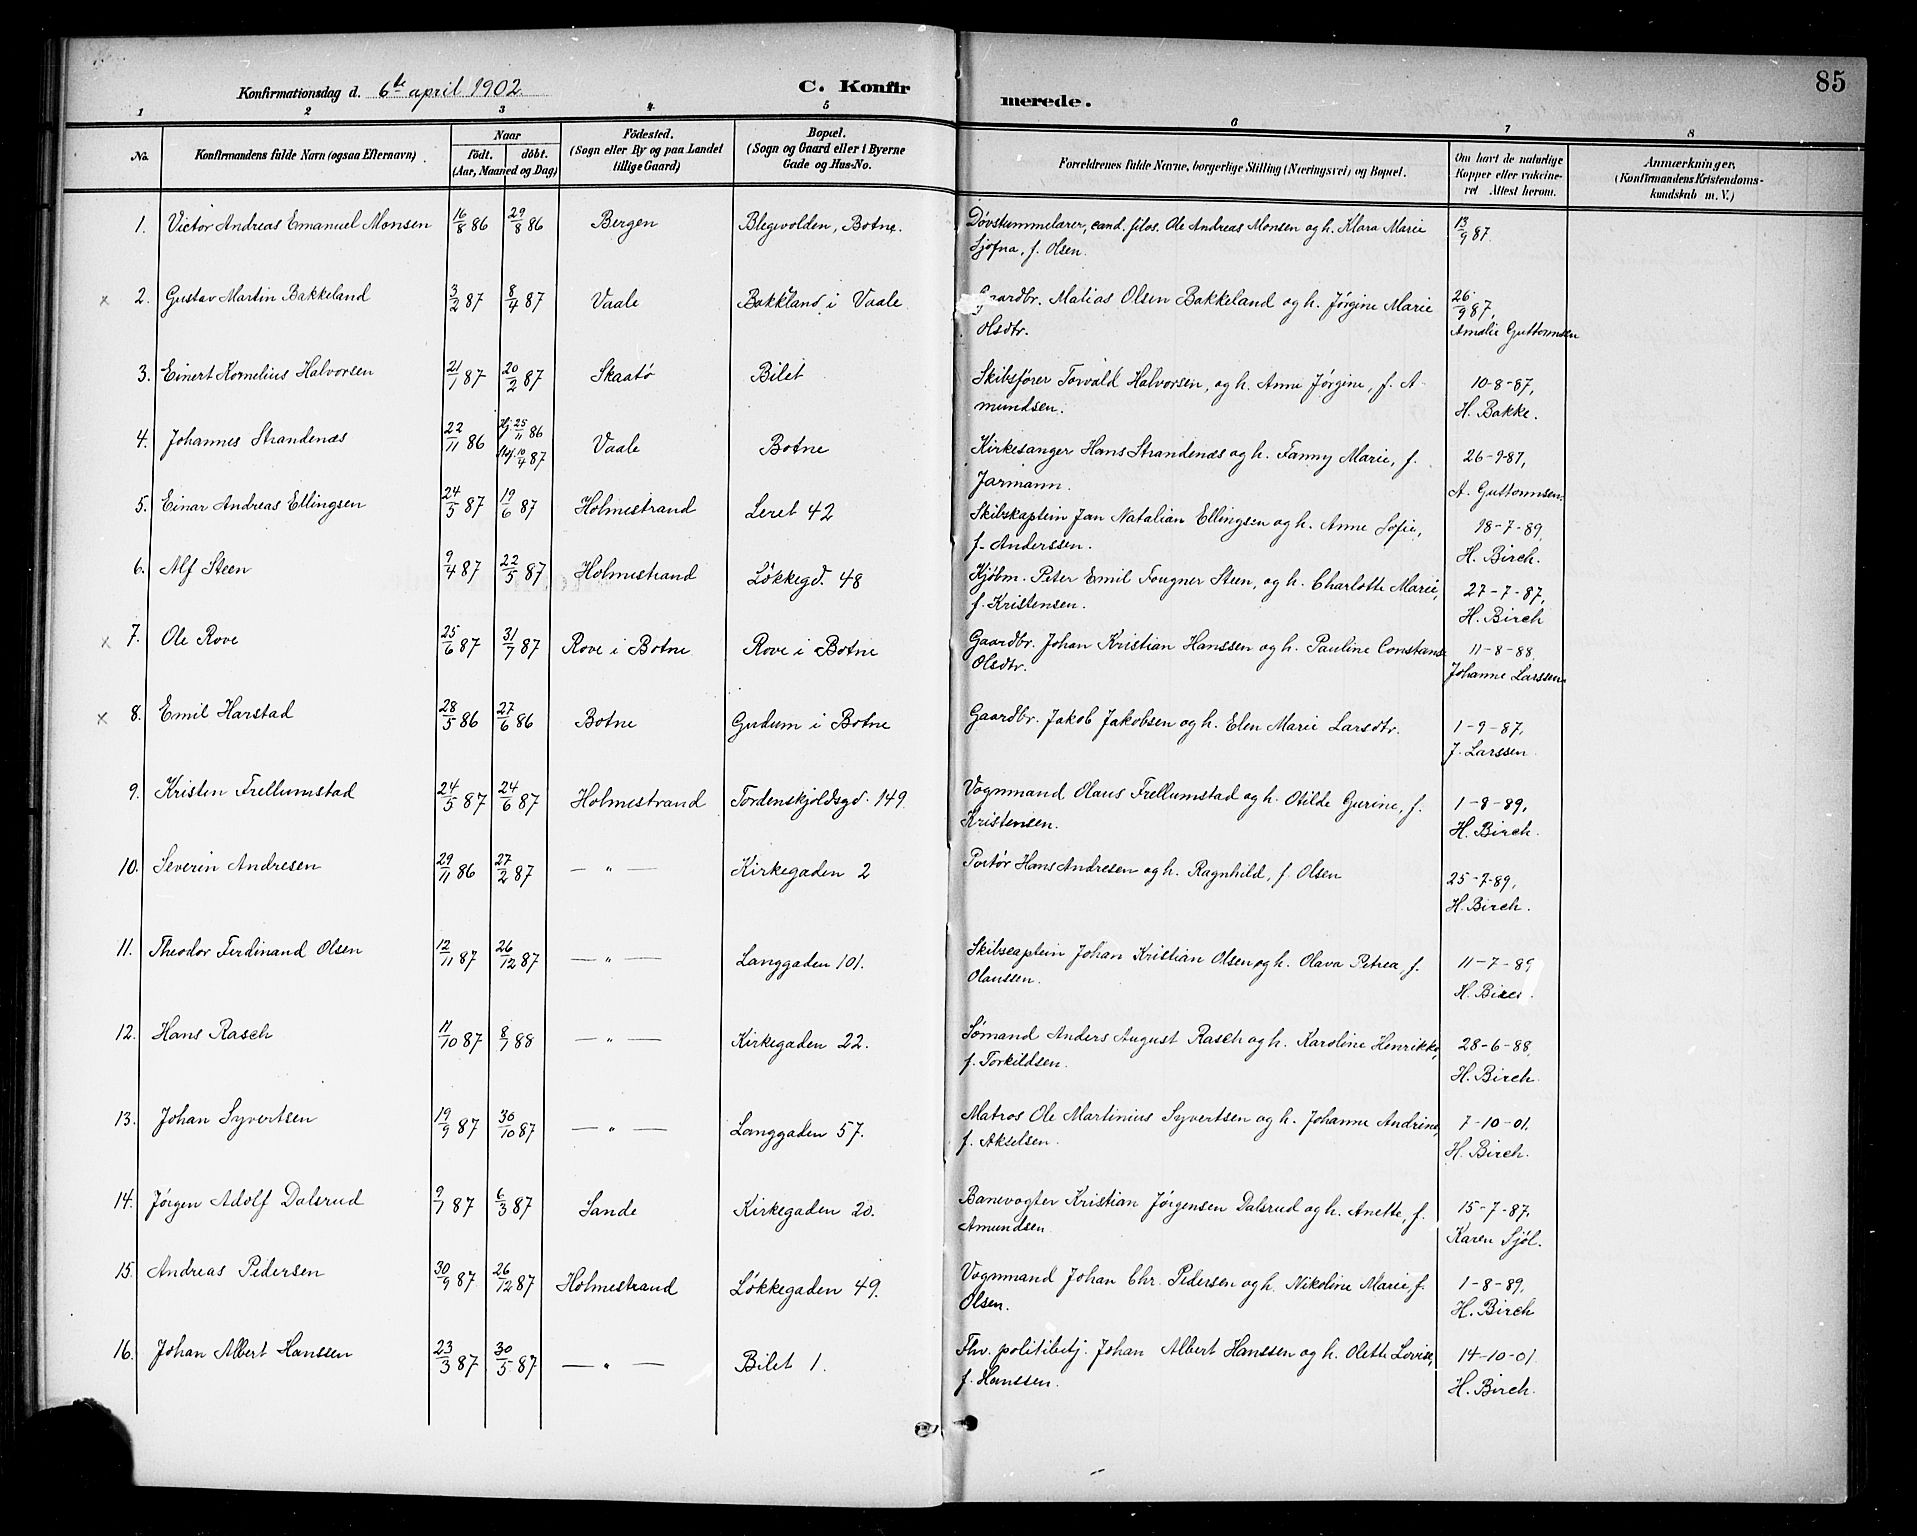 85
Konfirmationsdag d. 6te april 1902. C. Konfirmerede.
1 2 3 4 5 6 7 8
No. Konfirmandens fulde Navn (ogsaa Efternavn) Naar födt. döbt. (Aar, Maaned og Dag) Födested. (Sogn eller By og paa Landet tillige Gaard) Bopæl. (Sogn og Gaard eller i Byerne Gade og Hus-No. Forældrenes fulde Navne, borgerlige Stilling (Næringsvei) og Bopæl. Om havt de naturlige Kopper eller vakcineret. Attest herom. Anmærkninger. (Konfirmandens Kristendomskundskab m. V.)
1. Victor Andreas Emanuel Monsen 16/8 86 29/8 86 Bergen Blegevolden, Botne. Døvstummelærer, cand. filos. Ole Andreas Monsen og h. Klara Marie 13/9 87.
Sjofna, f. Olsen.
x 2. Gustav Martin Bakkeland 3/2 87 8/4 87 Vaale Bakkland i Vaale Gaardbr. Matias Olsen Bakkeland og h. Jørgine Marie 26/9 87,
Olsdtr. Amalie Guttormsen
3. Einert Kornelius Halvorsen 21/1 87 20/2 87 Skaatø Bilet Skibsfører Torvald Halvorsen, og h. Anne Jørgine, f. A- 10-8-87,
mundsen. H. Bakke.
4. Johannes Strandenæs 22/11 86 hj. 25/11 86 Vaale Botne Kirkesanger Hans Strandenæs og h. Fanny Marie, f. 26-9-87,
10/4 87 Jarmann. A. Guttormsen
5. Einar Andreas Ellingsen 24/5 87 19/6 87 Holmestrand Leret 42 Skibskaptein Jan Natalian Ellingsen og h. Anne Sofie, 18-7-89,
f. Anderssen. H. Birch.
6. Alf Steen 9/4 87 22/5 87 Holmestrand Løkkegd. 48 Kjøbm. Peter Emil Fougner Steen, og h. Charlotte Marie, 27-7-87,
f. Kristensen. H. Birch
x 7. Ole Rove 25/6 87 31/7 87 Rove i Botne Rove i Botne Gaardbr. Johan Kristian Hanssen og h. Pauline Constanse 11-8-88
Olsdtr. Johanne Larssen
x 8. Emil Harstad 28/5 86 27/6 86 Botne Gudum i Botne Gaardbr. Jakob Jakobsen og h. Elen Marie Larsdtr. 1-9-87,
J. Larssen
9. Kristen Frellumstad 24/5 87 24/6 87 Holmestrand Tordenskjoldsgd. 149. Vognmand Olaus Frellumstad og h. Otilde Gurine, f. 1-8-89,
Kristensen. H. Birch.
10. Severin Andresen 29/11 86 27/2 87 — " — Kirkegaden 2 Portør Hans Andresen og h. Ragnhild, f. Olsen 25-7-89,
H. Birch.
11. Theodor Ferdinand Olsen 12/11 87 26/12 87 — " — Langgaden 101. Skibscaptein Johan Kristian Olsen og h. Olava Petrea, f. 11-7-89
Olaussen. H. Birch.
12. Hans Rasch 11/10 87 8/1 88 — " — Kirkegaden 22. Sømand Anders August Rasch og h. Karoline Henrikke, 28-6-88,
f. Torkildsen. H. Birch.
13. Johan Syvertsen 19/9 87 30/10 87 — " — Langgaden 57. Matros Ole Martinius Syvertsen og h. Johanne Andrine, 7-10-01.
f. Akselsen. H. Birch.
14. Jørgen Adolf Dalsrud 9/1 87 6/3 87 Sande Kirkegaden 20. Banevogter Kristian Jørgensen Dalsrud og h. Anette, f. 15-7-87,
Amundsen. Karen Sjøl.
15. Andreas Pedersen 30/9 87 26/12 87 Holmestrand Løkkegaden 49. Vognmand Johan Chr. Pedersen og h. Nikoline Marie, f. 1-8-89,
Olsen. H. Birch
16. Johan Albert Hanssen 23/3 87 30/5 87 — " — Bilet 1. Fhv. politibetj. Johan Albert Hanssen og h. Olette Lovise, 14-10-01
f. Hanssen. H. Birch.